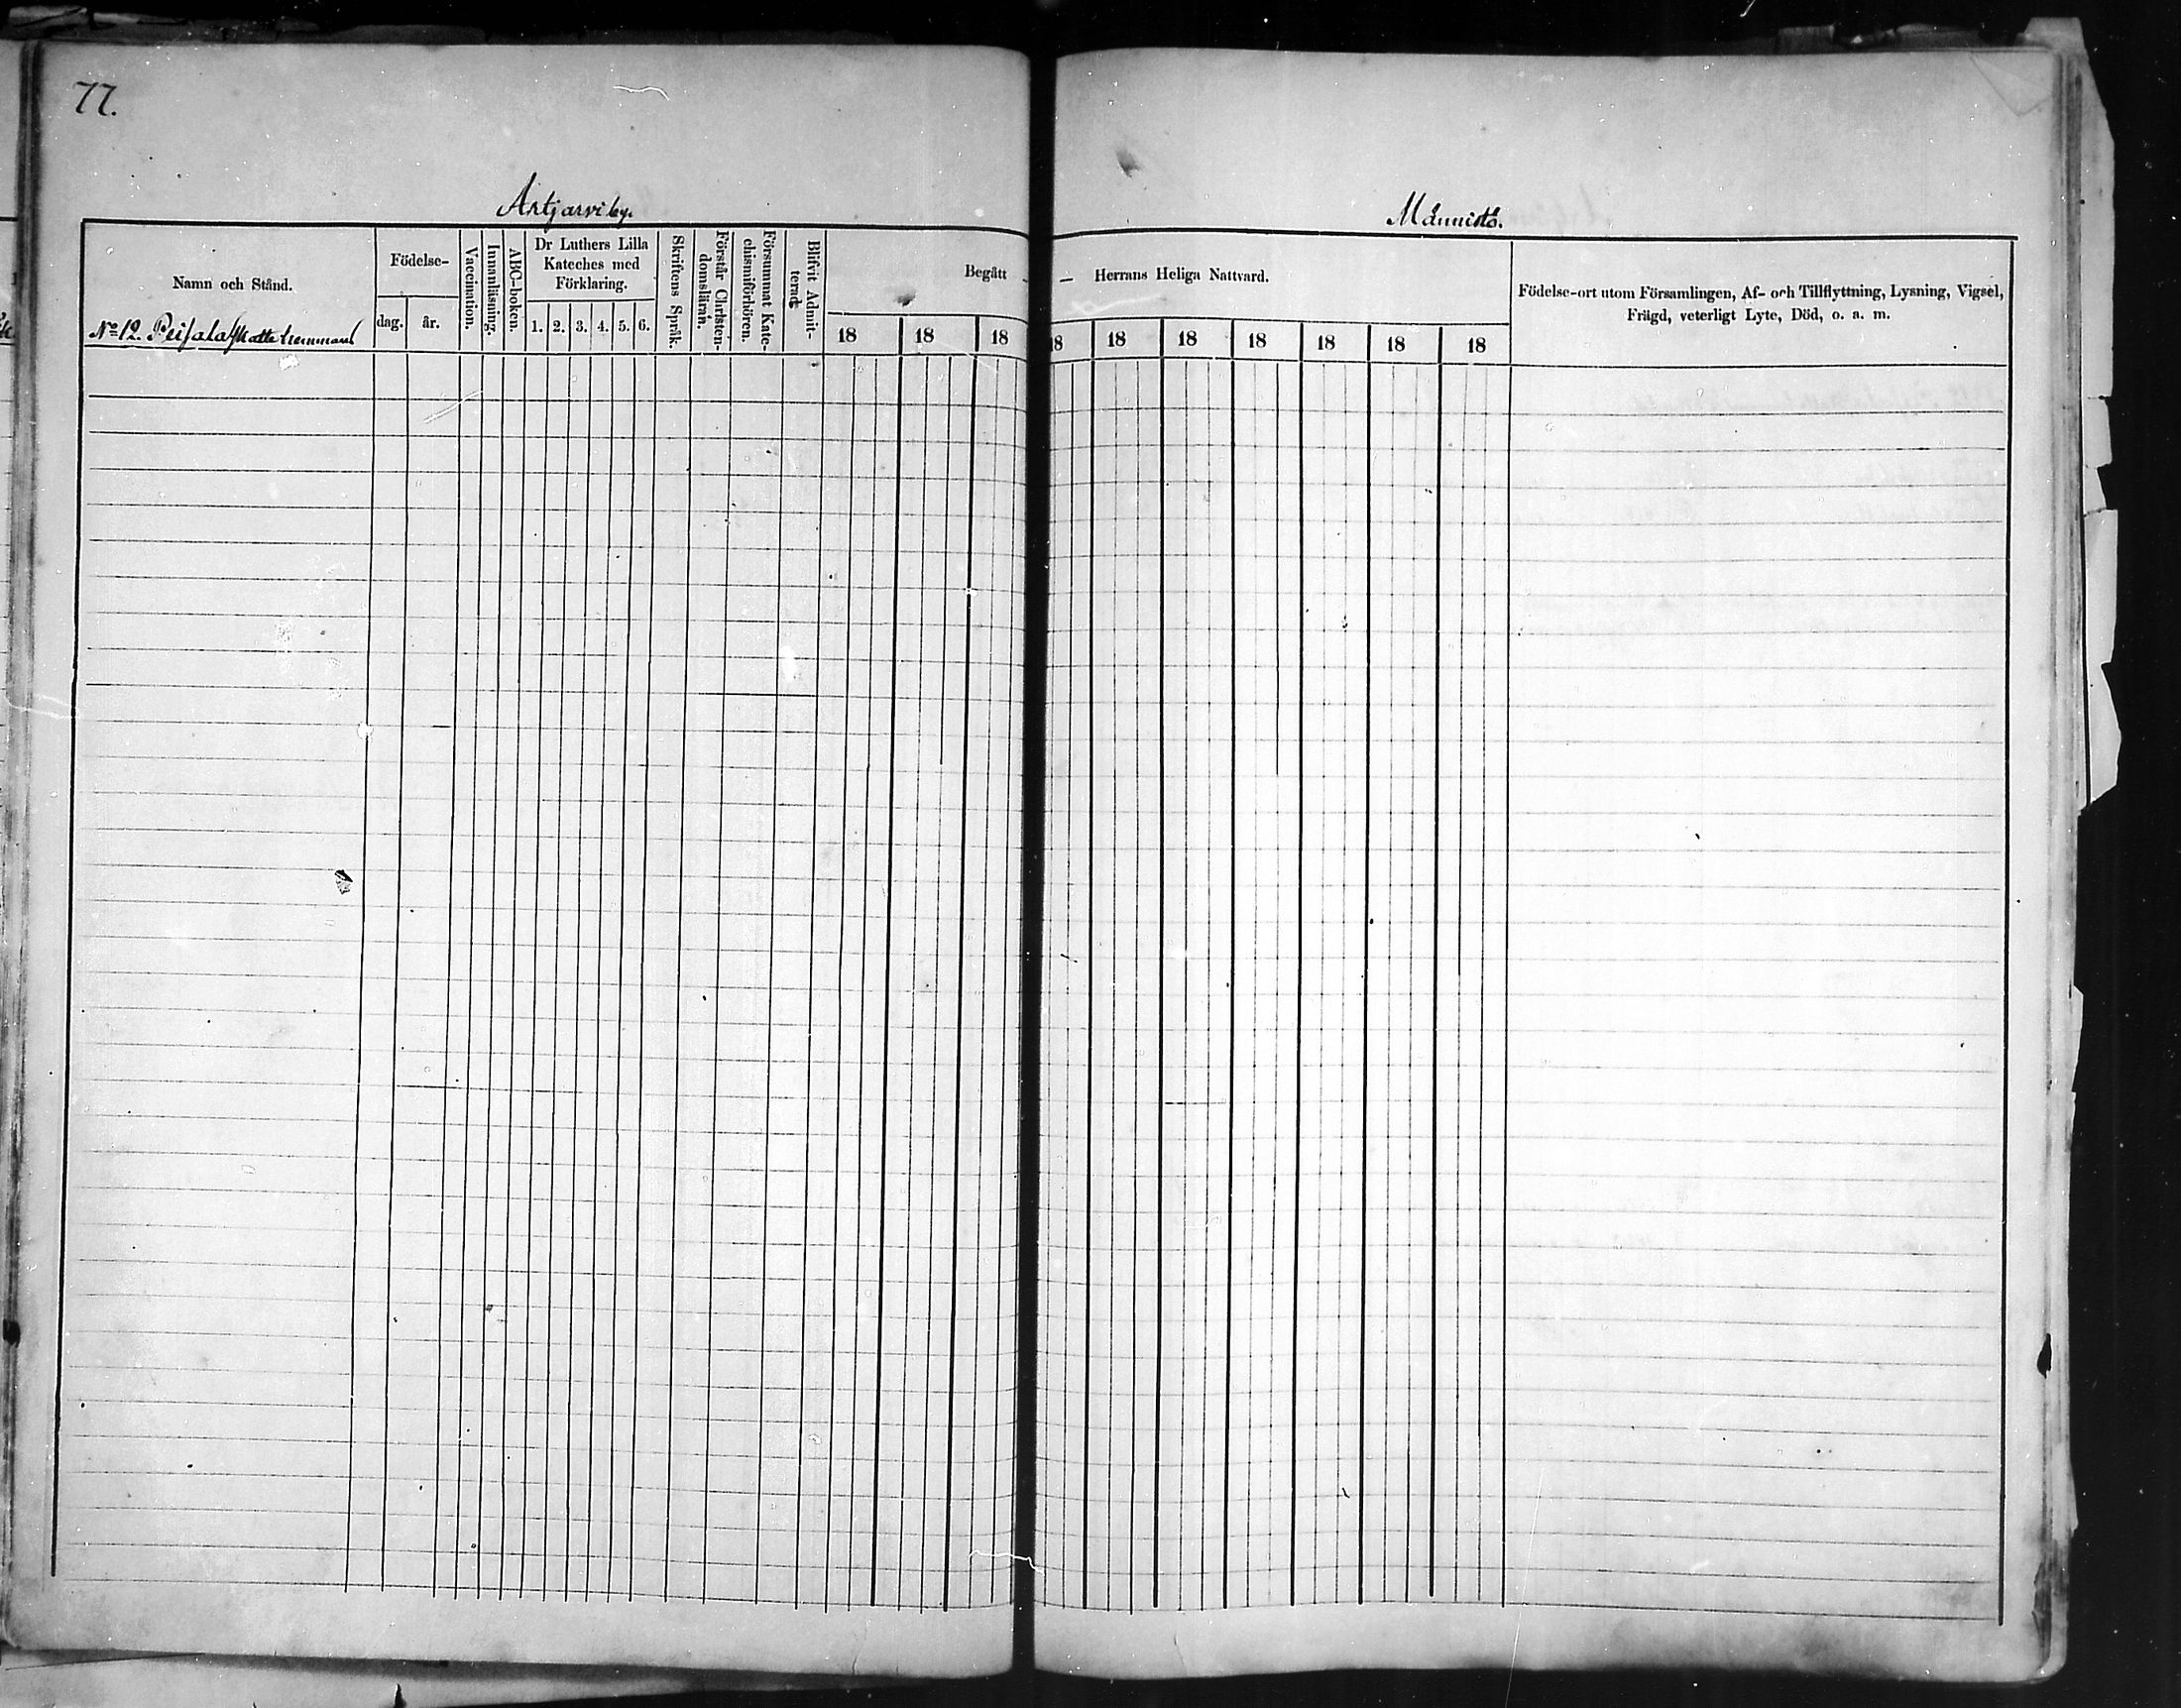 77.
Artjärvi by.
Männistö.
Namn och Stånd.
Födelse-
dag.
år.
Vaccination.
Innanläsning.
ABC-boken.
Dr Luthers Lilla
Kateches med
Förklaring.
1. 2. 3. 4. 5. 6.
Skriftens Språk.
Förstår Christen-
domsläran.
Försummat Kate-
chismiförhören.
Blifvit Admit-
terad.
Begått — Herrans Heliga Nattvard.
18 18 18 18 18 18 18 18 18 18
Födelse-ort utom Församlingen, Af- och Tillflyttning, Lysning, Vigsel,
Frägd, veterligt Lyte, Död, o. a. m.
No 12. Peisala Skatte hemman